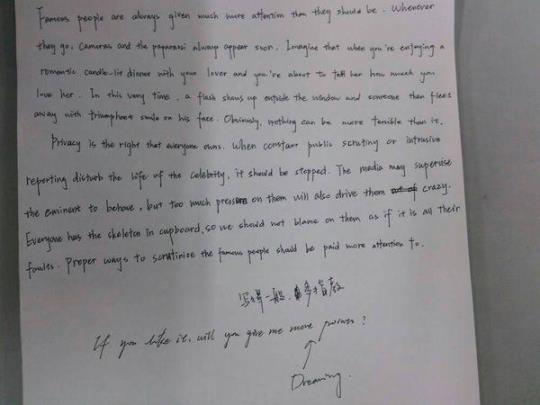 Famous people are always given much more attention than they should be. Whenever
they go, cameras and the paparazzi always appear soon. Imagine that when you're enjoying a
romantic candle-lit dinner with your lover and you're about to tell her how much you
love her. In this very time, a flash shows up outside the window and someone then flees
away with triumphant smile on his face. Obviously, nothing can be more terrible than it.
Privacy is the right that everyone owns. When constant public scrutiny or intrusive
reporting disturb the life of the celebrity, it should be stopped. The media may supervise
the eminent to behave, but too much pressure on them will also drive them crazy.
Everyone has the skeleton in cupboard, so we should not blame on them as if it is all their
faules. Proper ways to scrutinize the famous people should be paid more attention to.
写得一般、多指教
If you like it, will you give me more praises?
Dreaming.